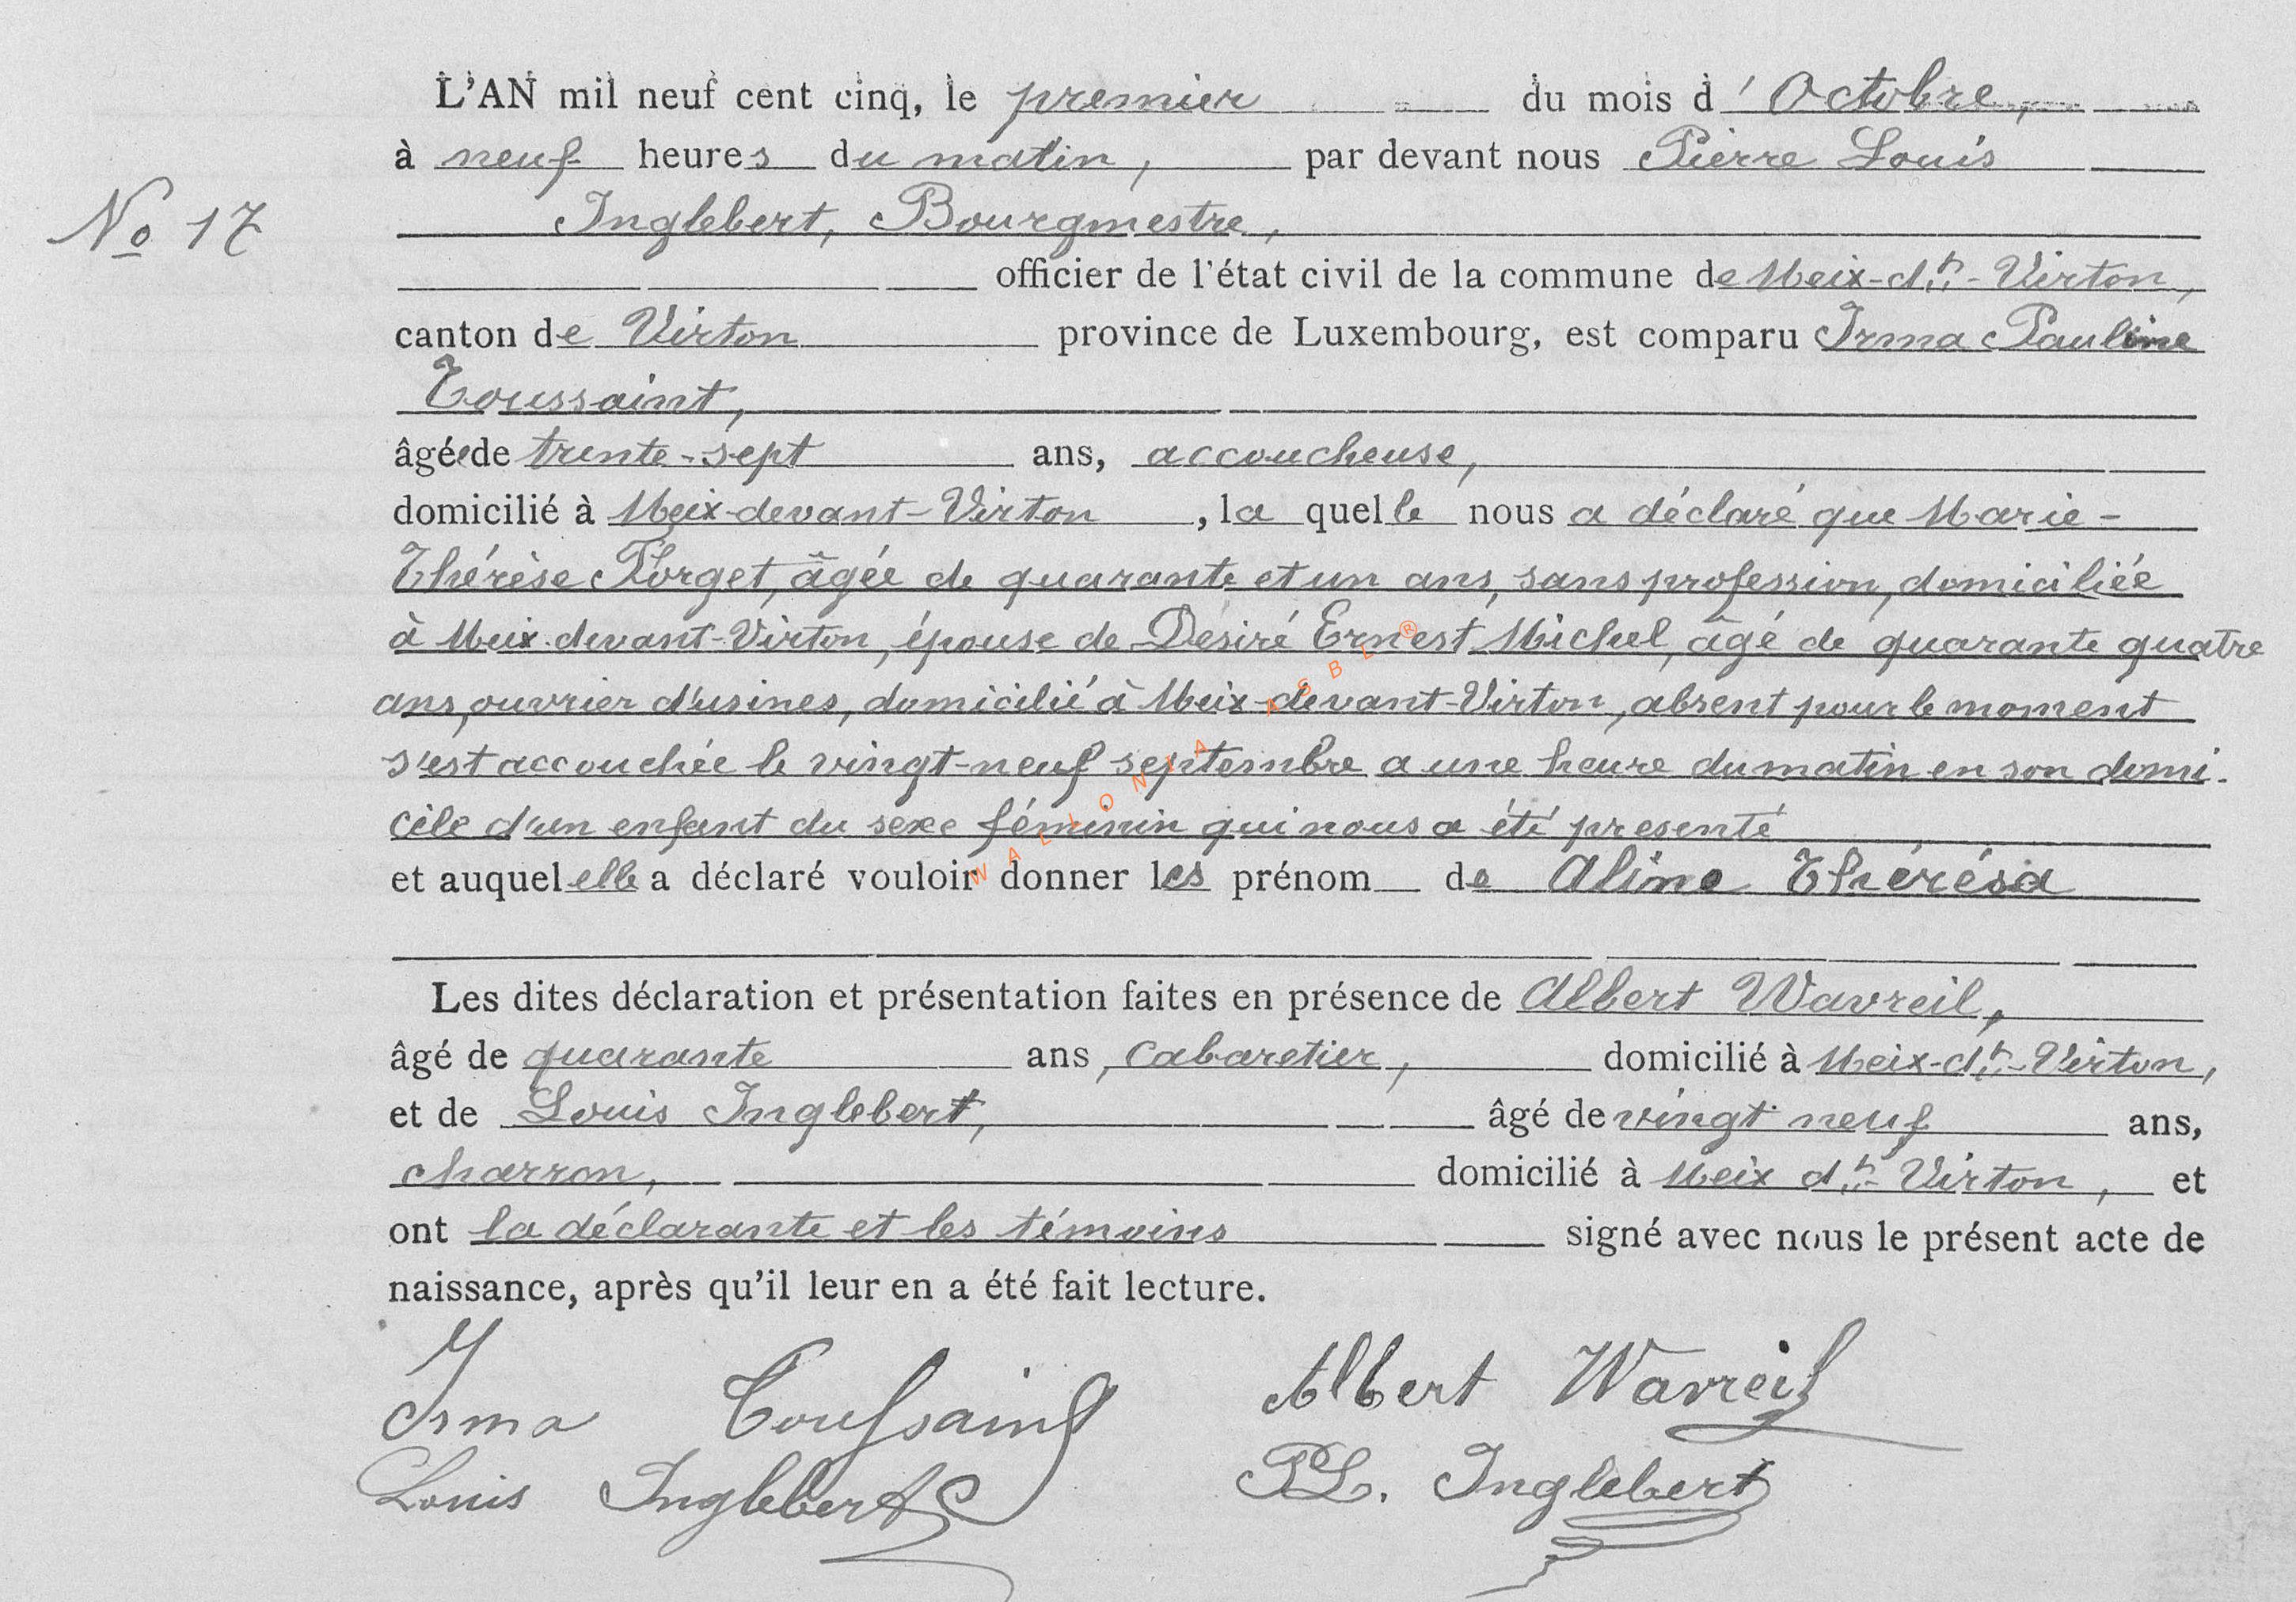 L'AN mil neuf cent cinq, le premier du mois d'Octobre,
à neuf heures du matin, par devant nous Pierre Louis
No 17
Inglebert, Bourgmestre,
officier de l'état civil de la commune de Meix-dt-Virton,
canton de Virton province de Luxembourg, est comparu Irma Pauline
Toussaint,
âgée de trente-sept ans, accoucheuse,
domicilié à Meix-devant-Virton, la quelle nous a déclaré que Marie-
Thérèse Forget, âgée de quarante et un ans, sans profession, domiciliée
à Meix-devant-Virton, épouse de Desiré Ernest Michel, âgé de quarante quatre
ans, ouvrier d'usines, domicilié à Meix-devant-Virton, absent pour le moment
s'est accouchée le vingt-neuf septembre a une heure du matin en son domi-
cile d'un enfant du sexe féminin qui nous a été presenté
et auquel elle a déclaré vouloir donner les prénom de Aline Thérésa
WALLONIA ASBL ®
Les dites déclaration et présentation faites en présence de Albert Wavreil,
âgé de quarante ans, cabaretier, domicilié à Meix-dt-Virton,
et de Louis Inglebert, âgé de vingt neuf ans,
charron, domicilié à Meix dt-Virton, et
ont la déclarante et les témoins signé avec nous le présent acte de
naissance, après qu'il leur en a été fait lecture.
Irma Toussaint Albert Wavreil
Louis Inglebert PL. Inglebert